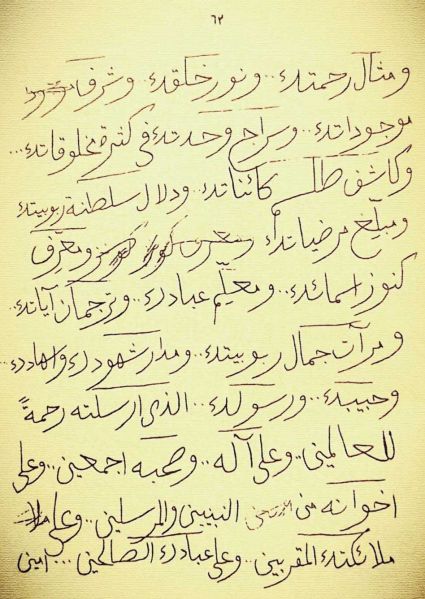 ٦٢
ومثال رحمتك.. ونور خلقك.. وشرف
موجوداتك.. وسراج وحدتك في كثرة مخلوقاتك...
وكاشف طلسم كائناتك.. ودلال سلطنة ربوبيتك
ومبلّغ مرضياتك.. ومعرّف
كنوز اسمائك.. ومعلّم عبادك.. وترجمان آياتك..
ومرآت جمال ربوبيتك.. ومدار شهودك واشهادك..
وحبيبك.. ورسولك.. الذي ارسلته رحمةً
للعالمين.. وعلى آله.. وصحبه اجمعين.. وعلى
اخوانه من النبيين والمرسلين.. وعلى
ملائكتك المقربين.. وعلى عبادك الصالحين... امين